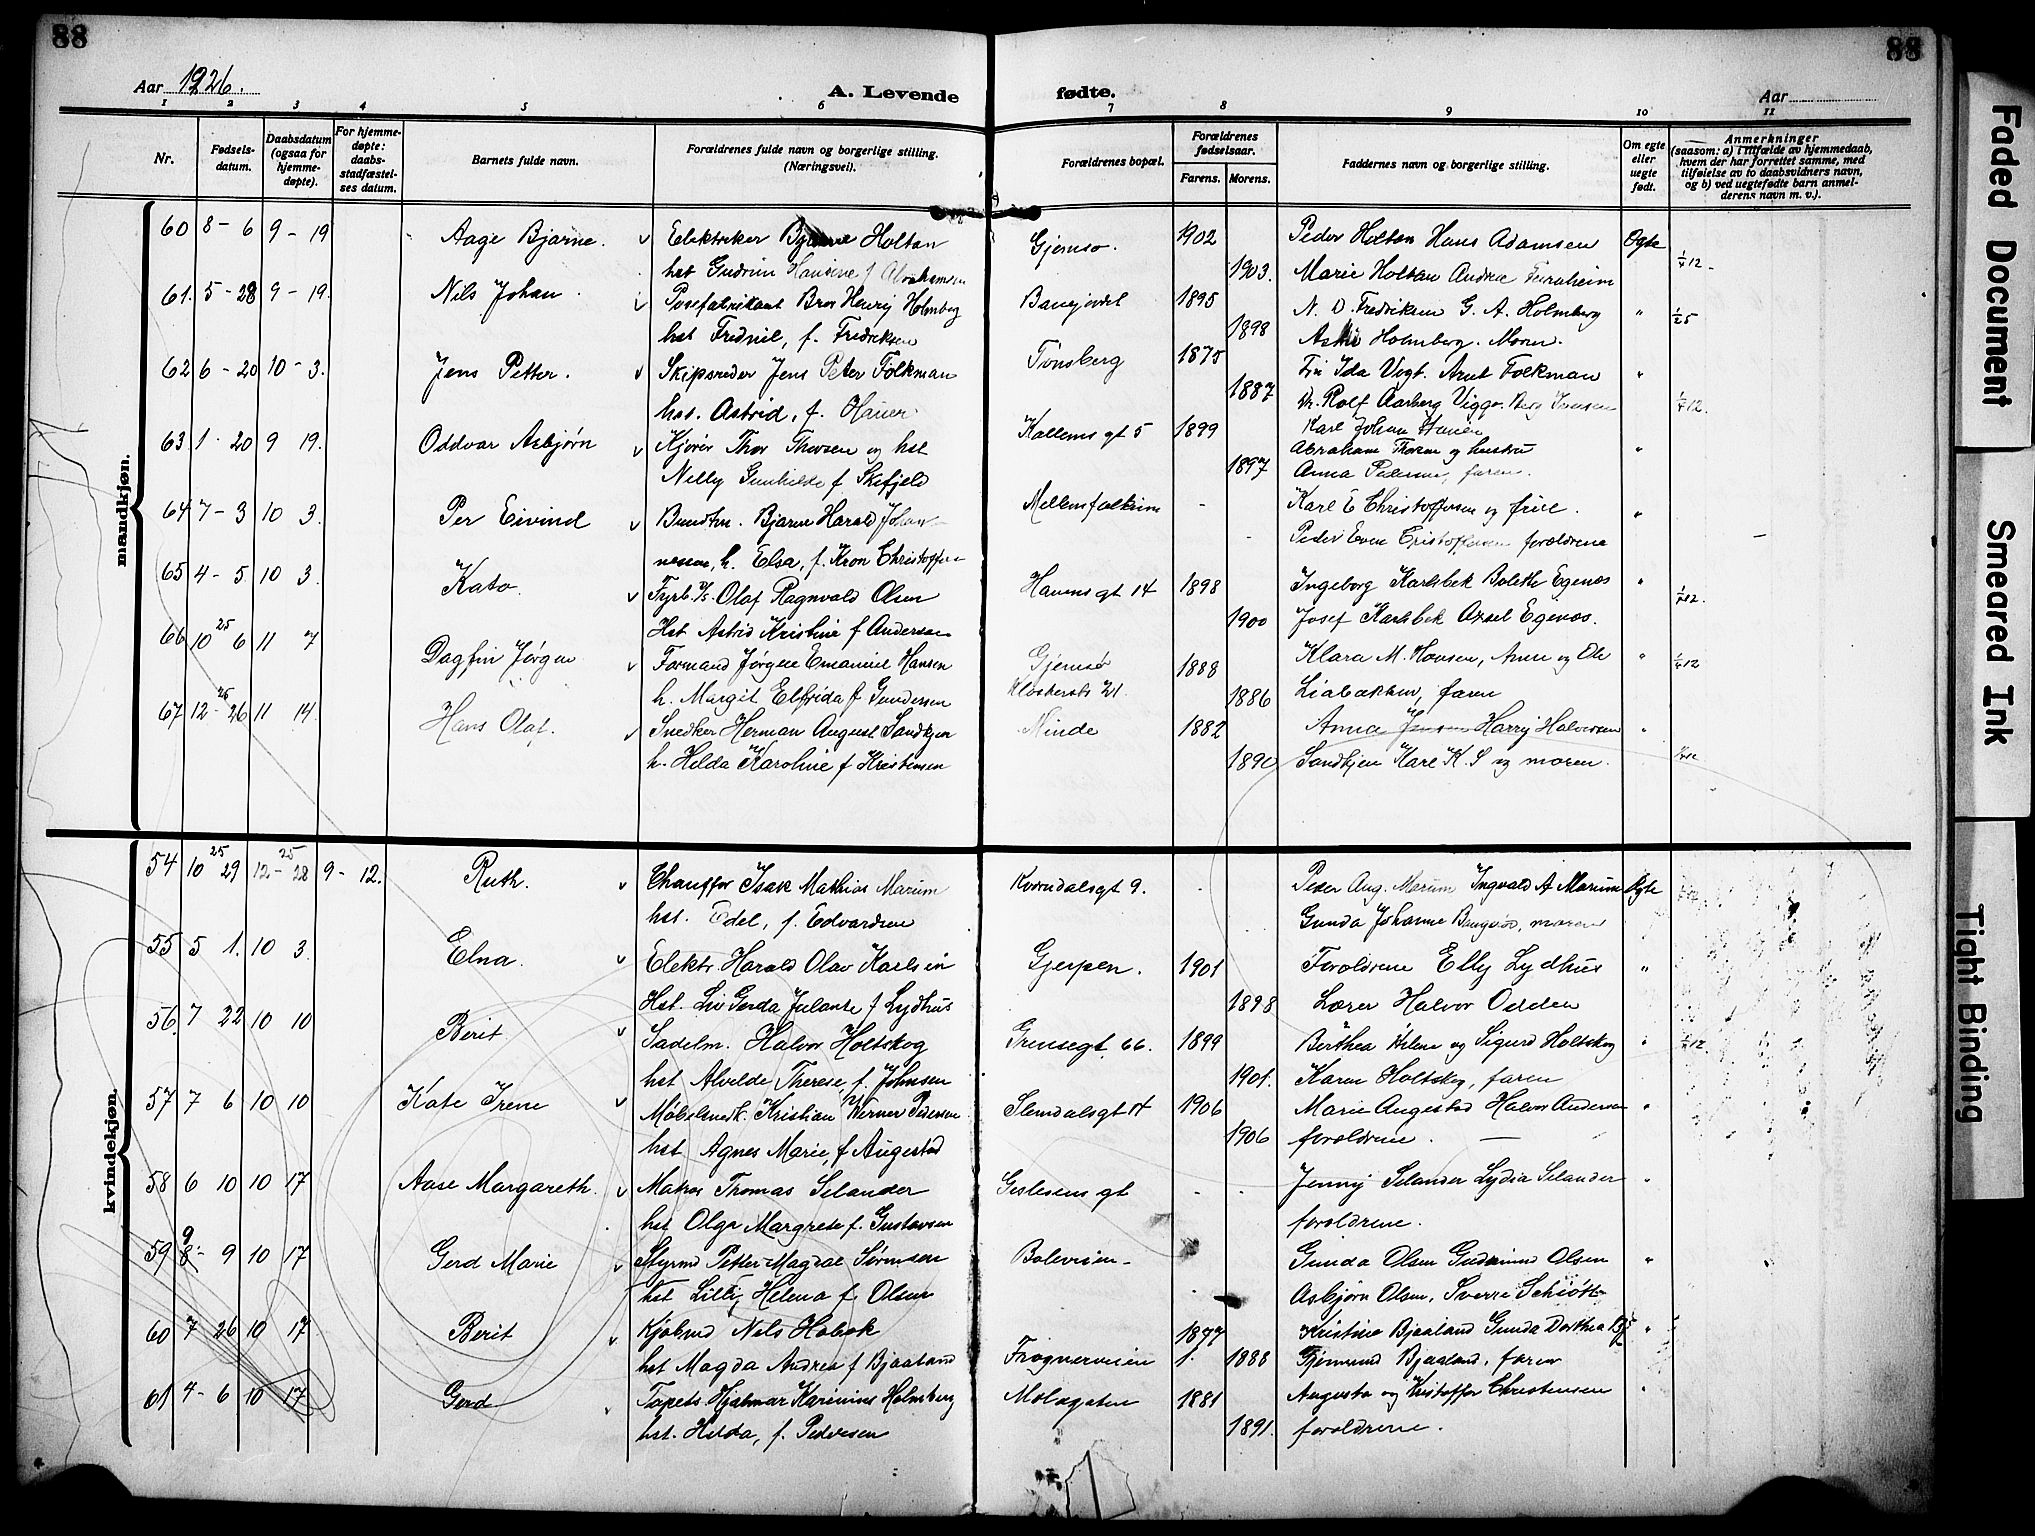 88
88
Aar 1926.
A. Levende fødte.
Aar
1 2 3 4 5 6 7 8 9 10 11
Nr.
Fødsels-
datum.
Daabsdatum
(ogsaa for
hjemme-
døpte).
For hjemme-
døpte:
daabs-
stadfæstel-
ses datum.
Barnets fulde navn.
Forældrenes fulde navn og borgerlige stilling.
(Næringsvei).
Forældrenes bopæl.
Forældrenes
fødselsaar.
Farens. Morens.
Faddernes navn og borgerlige stilling.
Om egte
eller
uegte
født.
Anmerkninger
(saasom: a) i tilfælde av hjemmedaab,
hvem der har forrettet samme, med
tilføielse av to daabsvidners navn,
og b) ved uegtefødte barn anmel-
derens navn m. v.).
mandkjøn.
60 8 - 6 9 - 19 Aage Bjarne. v Elektriker Bjarne Holtan Gjemsø. 1902 Peder Holtan Hans Adamsen Egte
hst Gudrun Hansine f Abrahamsen 1903. Marie Holtan Andrea
61. 5 - 28 9 - 19. Nils Johan v Posefabrikant Bror Henry Holmberg 1895 N. O. Fredriksen G. A. Holmberg "
hst Frednil, f. Fredriksen 1898 Holmberg. Moren.
62 6 - 20 10 - 3. Jens Petter. v Skipsreder Jens Peter Folkman Tønsberg 1875 Fru Ida Vogt. Arnt Folkman "
hst. Astrid, f. Hauer 1887 Dr. Rolf Aarberg Viggo Berg Iversen
Karl Johan Hauer
63. 1. 20 9 19. Oddvar Asbjørn v Kjører Thor Thorsen og hst Kallemsgt 5 1899 Abraham Thorsen og hustru "
Nelly Gunhilde f Skifjeld 1897 Anna Pedersen, faren.
64 7 - 3 10 3. Per Eivind v Bundtm. Bjarne Harald Johan- Mellemfolkum - Karl E Christoffersen og frue. "
nessen, h. Elsa, f. Kron Christoffersen - Peder Even Cristoffersen foreldrene -
65 4 - 5 10 3. Kato. v Fyrb. Olaf Ragnvald Olsen Havensgt 14 1898 Ingeborg Karlsbek Bolette Egenes "
Hst Astrid Kristine f Andersen 1900 Josef Karlsbek Aksel Egenes.
66 10 25 6 11 7 Dagfin Jørgen v Formand Jørgen Emanuel Hansen Gjemsø 1888 Klara M. Hansen, Anne og Ole "
h. Margit Elfrida f Gundersen Klosterst. 21. 1886 Liabakken, faren
67 12 - 26 11 14. Hans Olaf. v Snedker Herman August Sandkjen Ninde 1882 Anna Jensen Harry Halvorsen "
h. Hilda Karoline f Kristensen 1890 Sandkjen Kare K. S og moren.
kvindekjøn.
54 10 25 29 12 - 25 28 9 - 12. Ruth. v Chauffør Isak Mathias Marum Korndalsgt 9. - Peter Aug. Marum Ingvald A Marum Egte
hst. Edel, f. Edvardsen Gunda Johanne moren
55 5 1. 10 3. Elna. v Elektr. Harald Olav Karlsen Gjerpen. 1901 Foreldrene Elly Lydhus "
Hst. Liv Gerda Julante f Lydhus 1898 Lærer Halvor Odden
56. 7 22 10 10 Berit. v Sadelm. Halvor Holtskog Grensegt. 66. 1899 Berthea Helene og Sigurd Holtskog "
hst Alvilde Therese, f. Johnsen 1901. Karen Holtskog, faren
57 7 6 10 10 Kate Irene v Møbelsnedk. Kristian Werner Pedersen Slemdalsgt 14 1906 Marie Augestad Halvor Andersen "
hst Agnes Marie, f Augestad 1906 foreldrene. -
58 6 10 10 17 Aase Margareth. v Matros Thomas Selander Geslesens gt - - Jenny Selander Lydia Selander "
hst Olga Margrete f. Gustavsen foreldrene.
59 9 8 - 9 10 17 Gerd Marie v Styrmd Petter Magdal Sørensen Boleveien - Gunda Olsen Gudmund Olsen "
hst Lilli, Helena f. Olsen - Asbjørn Olsen, Sverre Schiøtt
60 7 26 10 17 Berit v Kjøbmd Nils Habæk 1877 Kristine Bjaaland Gunda Dorthea "
hst Magda Andrea f Bjaaland Frognerveien 1888 Gjermund Bjaaland, faren
61 4 - 6 10 17 Gerd Tapets. Hjalmar Karinius Holmberg Molagaten 1881 Augusta og Kristoffer Christensen "
hst. Hilda, f. Pedersen 1891. foreldrene.
Faded Document
Smeared Ink
Tight Binding